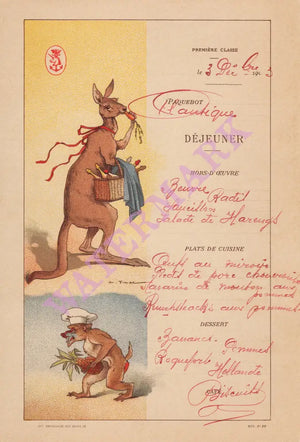 PREMIÈRE CLASSE
le 3 Déc 1903
PAQUEBOT
DÉJEUNER
HORS-D'ŒUVRE
Beurre Radis
Saucisson
Salade de Harengs
PLATS DE CUISINE
Œufs au miroir
Pieds de porc
de mouton aux pommes
Rumpsteacks aux pommes
DESSERT
Bananes Prunes
Roquefort Hollande
CAFÉ
Biscuits
WATERMARK